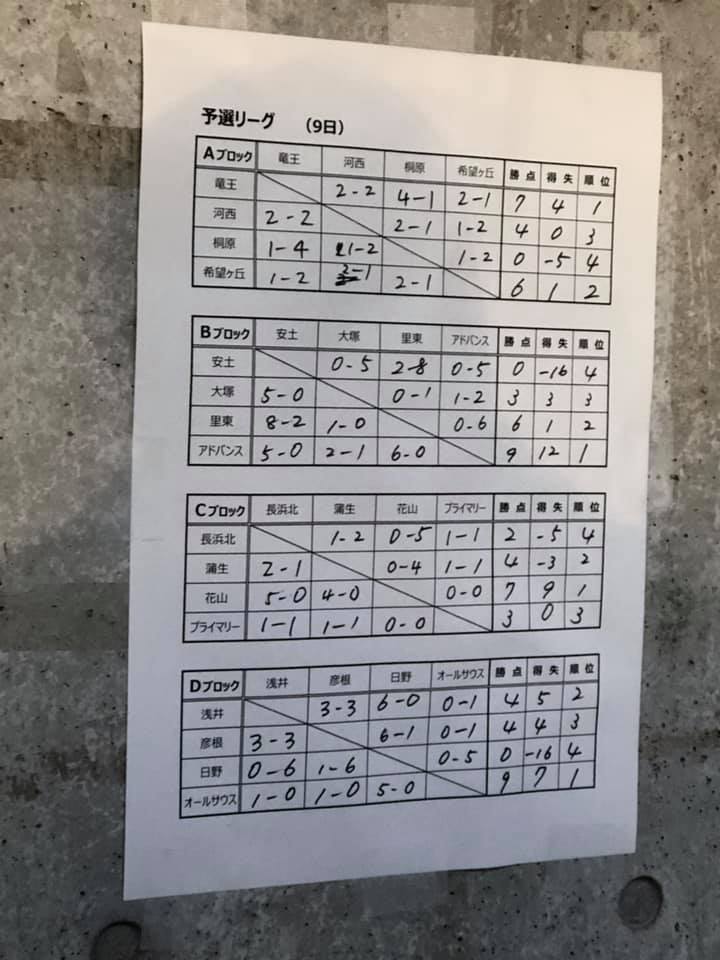 予選リーグ （9日）
Aブロック 竜王 河西 桐原 希望ヶ丘 勝点 得失 順位
竜王 2-2 4-1 2-1 7 4 1
河西 2-2 2-1 1-2 4 0 3
桐原 1-4 1-2 1-2 0 -5 4
希望ヶ丘 1-2 2-1 2-1 6 1 2
Bブロック 安土 大塚 里東 アドバンス 勝点 得失 順位
安土 0-5 2-8 0-5 0 -16 4
大塚 5-0 0-1 1-2 3 3 3
里東 8-2 1-0 0-6 6 1 2
アドバンス 5-0 2-1 6-0 9 12 1
Cブロック 長浜北 蒲生 花山 プライマリー 勝点 得失 順位
長浜北 1-2 0-5 1-1 2 -5 4
蒲生 2-1 0-4 1-1 4 -3 2
花山 5-0 4-0 0-0 7 9 1
プライマリー 1-1 1-1 0-0 3 0 3
Dブロック 浅井 彦根 日野 オールサウス 勝点 得失 順位
浅井 3-3 6-0 0-1 4 5 2
彦根 3-3 6-1 0-1 4 4 3
日野 0-6 1-6 0-5 0 -16 4
オールサウス 1-0 1-0 5-0 9 7 1